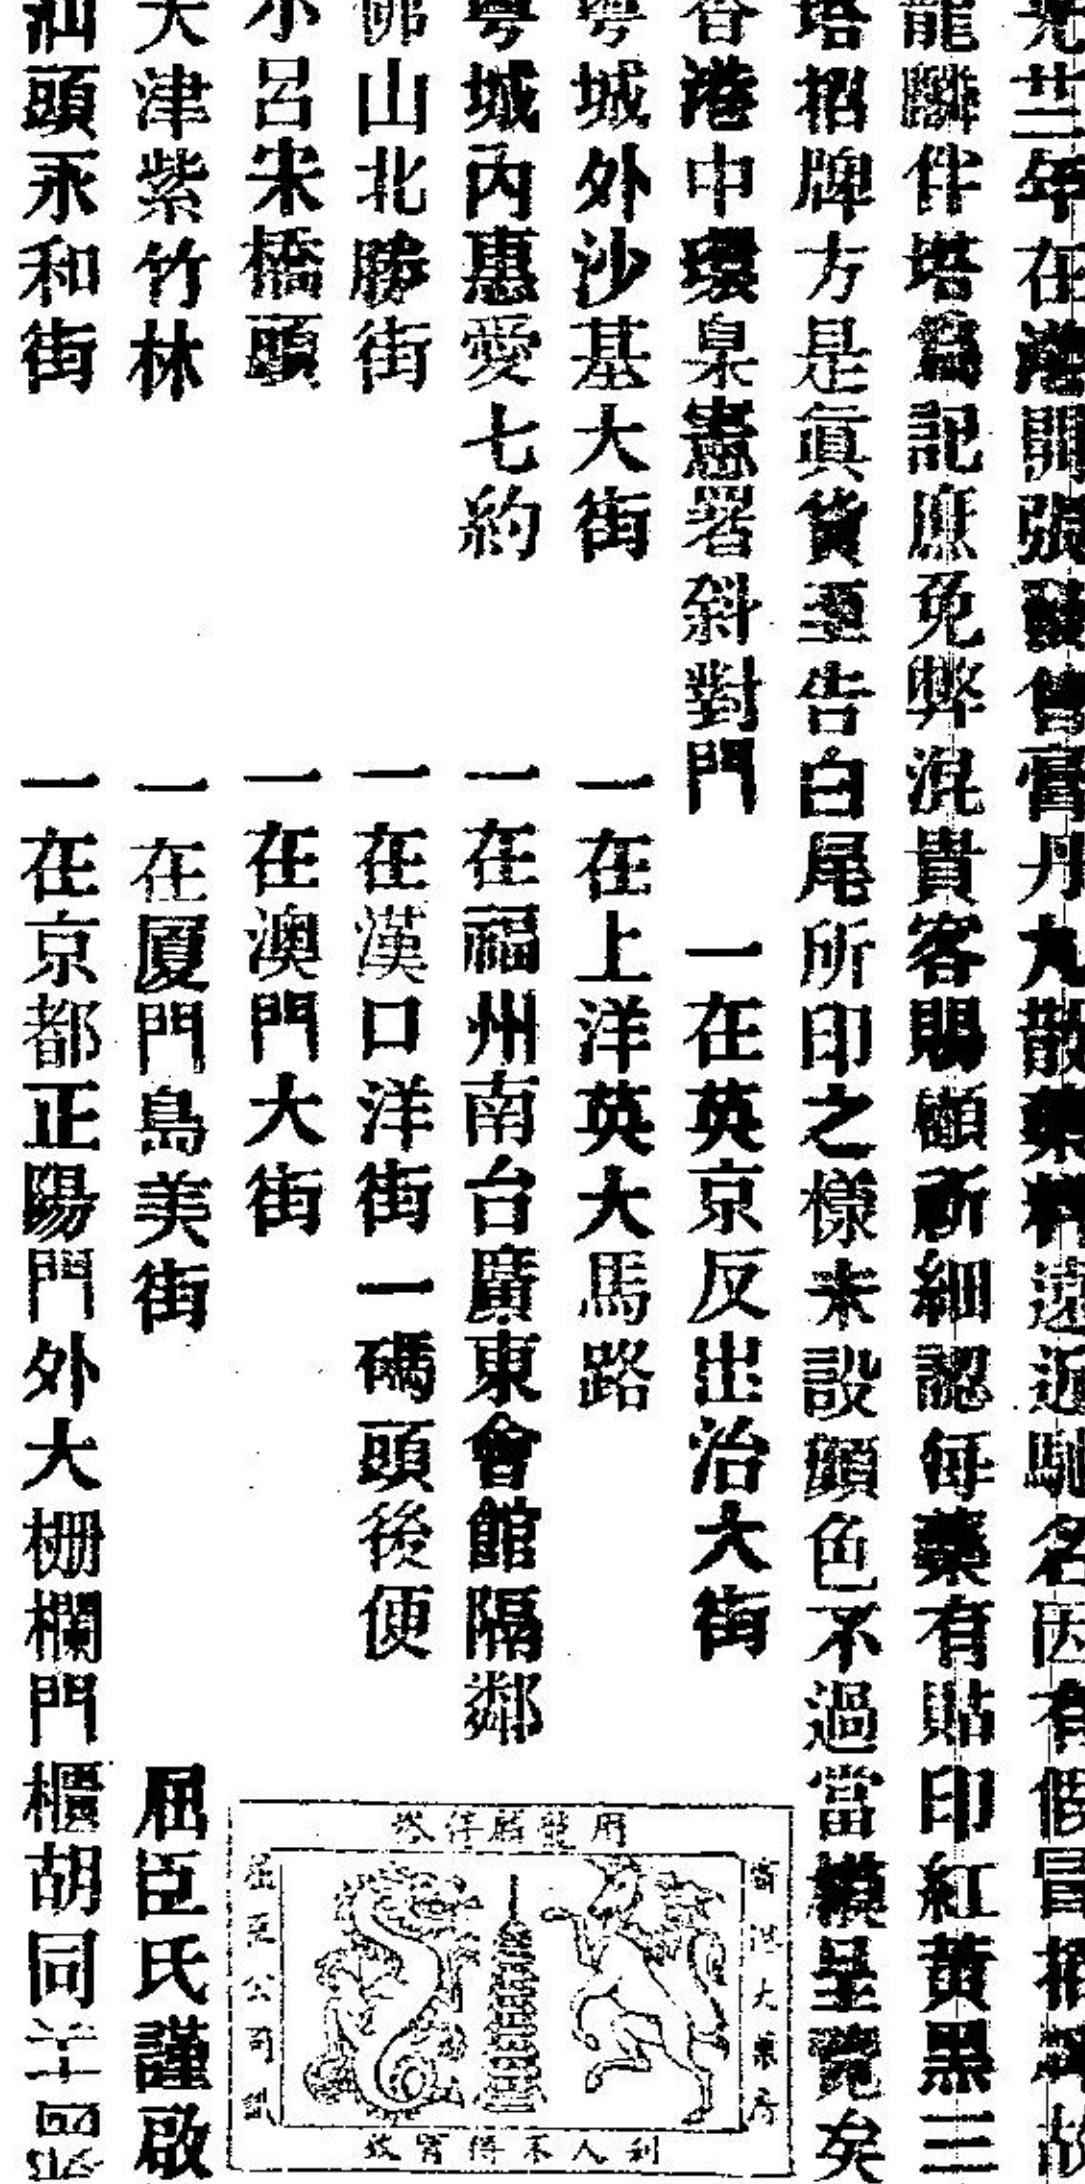 光廿二年在港開張發售膏丹丸散藥料遠近馳名因有假冒招牌故
龍麟伴塔為記庶免弊混貴客賜顧祈細認每藥有貼印紅黃黑三
塔招牌方是眞貨至告白尾所印之樣未設顏色不過當模呈覽矣
香港中環臬憲署斜對門 一在英京反出治大街
粵城外沙基大街 一在上洋英大馬路
粵城內惠愛七約 一在福州南台廣東會館隔鄰
佛山北勝街 一在漢口洋街一碼頭後便
小呂宋橋頭 一在澳門大街
天津紫竹林 一在厦門島美街
汕頭永和街 一在京都正陽門外大柵欄門櫃胡同
屈臣氏謹啟
用龍麟伴塔
香港大藥房
屈臣公司
利人不得冒